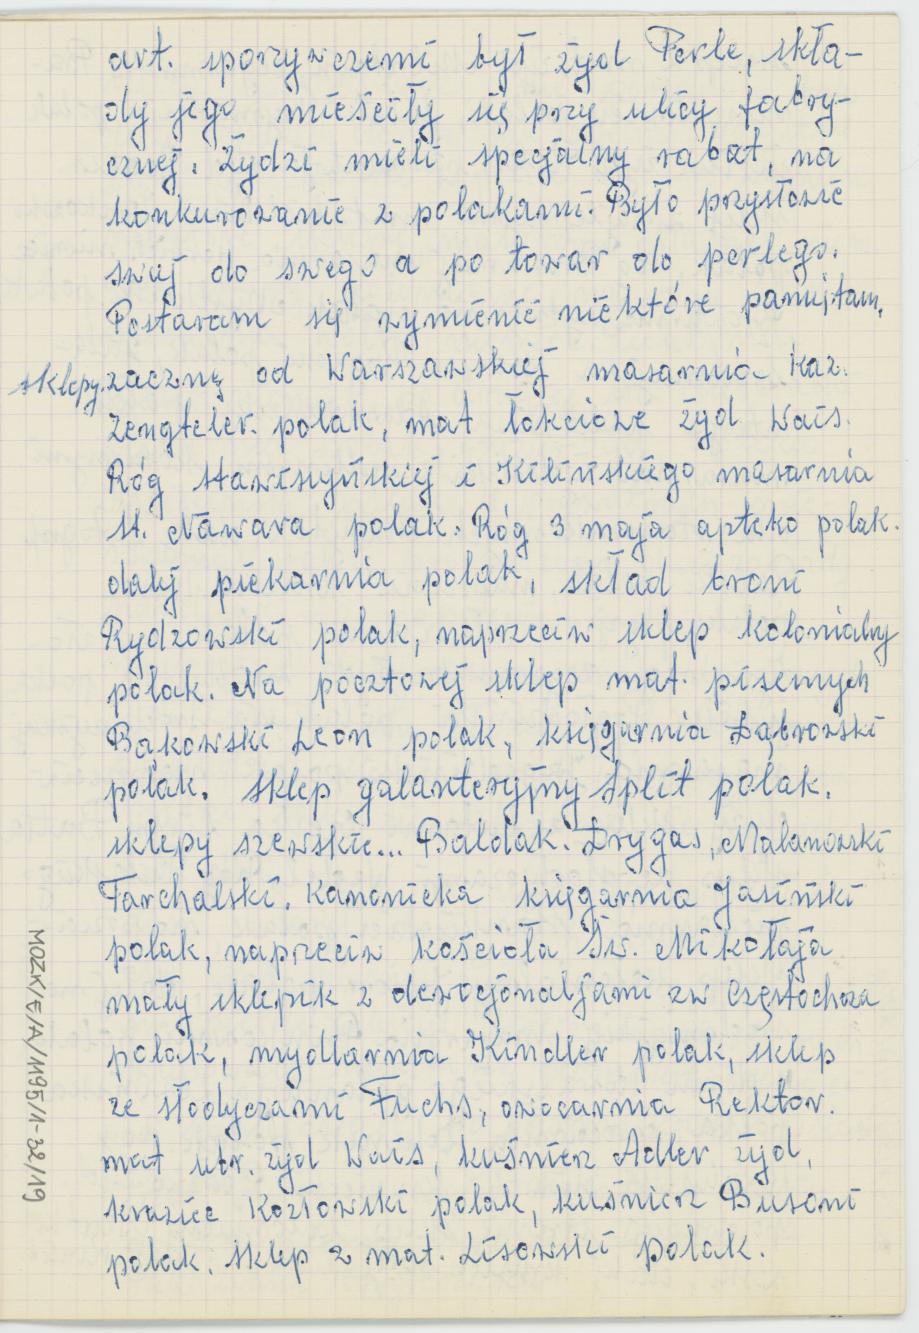 art. spożywczemi był żyd Perle, skła-
dy jego mieściły się przy ulicy fabry-
cznej. Żydzi mieli specjalny rabat, na
konkurowanie z polakami. Było przysłowie
swój do swego a po towar do perlego.
Postaram się wymienić niektóre pamiętam,
sklepy. zacznę od Warszawskiej masarnia Kaz.
Zengteler. polak, mat łokciowe żyd Wais.
Róg stawiszyńskiej i Kilińskiego masarnia
St. Nawara polak. Róg 3 maja apteka polak.
dalej piekarnia polak, skład broni
Rydzowski polak, naprzeciw sklep kolonialny
polak. Na pocztowej sklep mat. pisemnych
Bąkowski Leon polak, księgarnia Dąbrowski
polak. Sklep galanteryjny Split polak.
sklepy szewskie... Baldak. Drygas, Malanowski
Tarchalski. Kanonicka księgarnia Jasiński
polak, naprzeciw kościoła Św. Mikołaja
mały sklepik z dewocjonaljami zw Częstochowa
polak, mydlarnia Kindler polak, sklep
ze słodyczami Fuchs, owocarnia Rektor.
mat ubr. żyd Wais, kuśnierz Adler żyd,
krawiec Kozłowski polak, kuśnierz Busoni
polak. Sklep z mat. Lisowski polak.
MOZK/E/A/1195/1-32/19